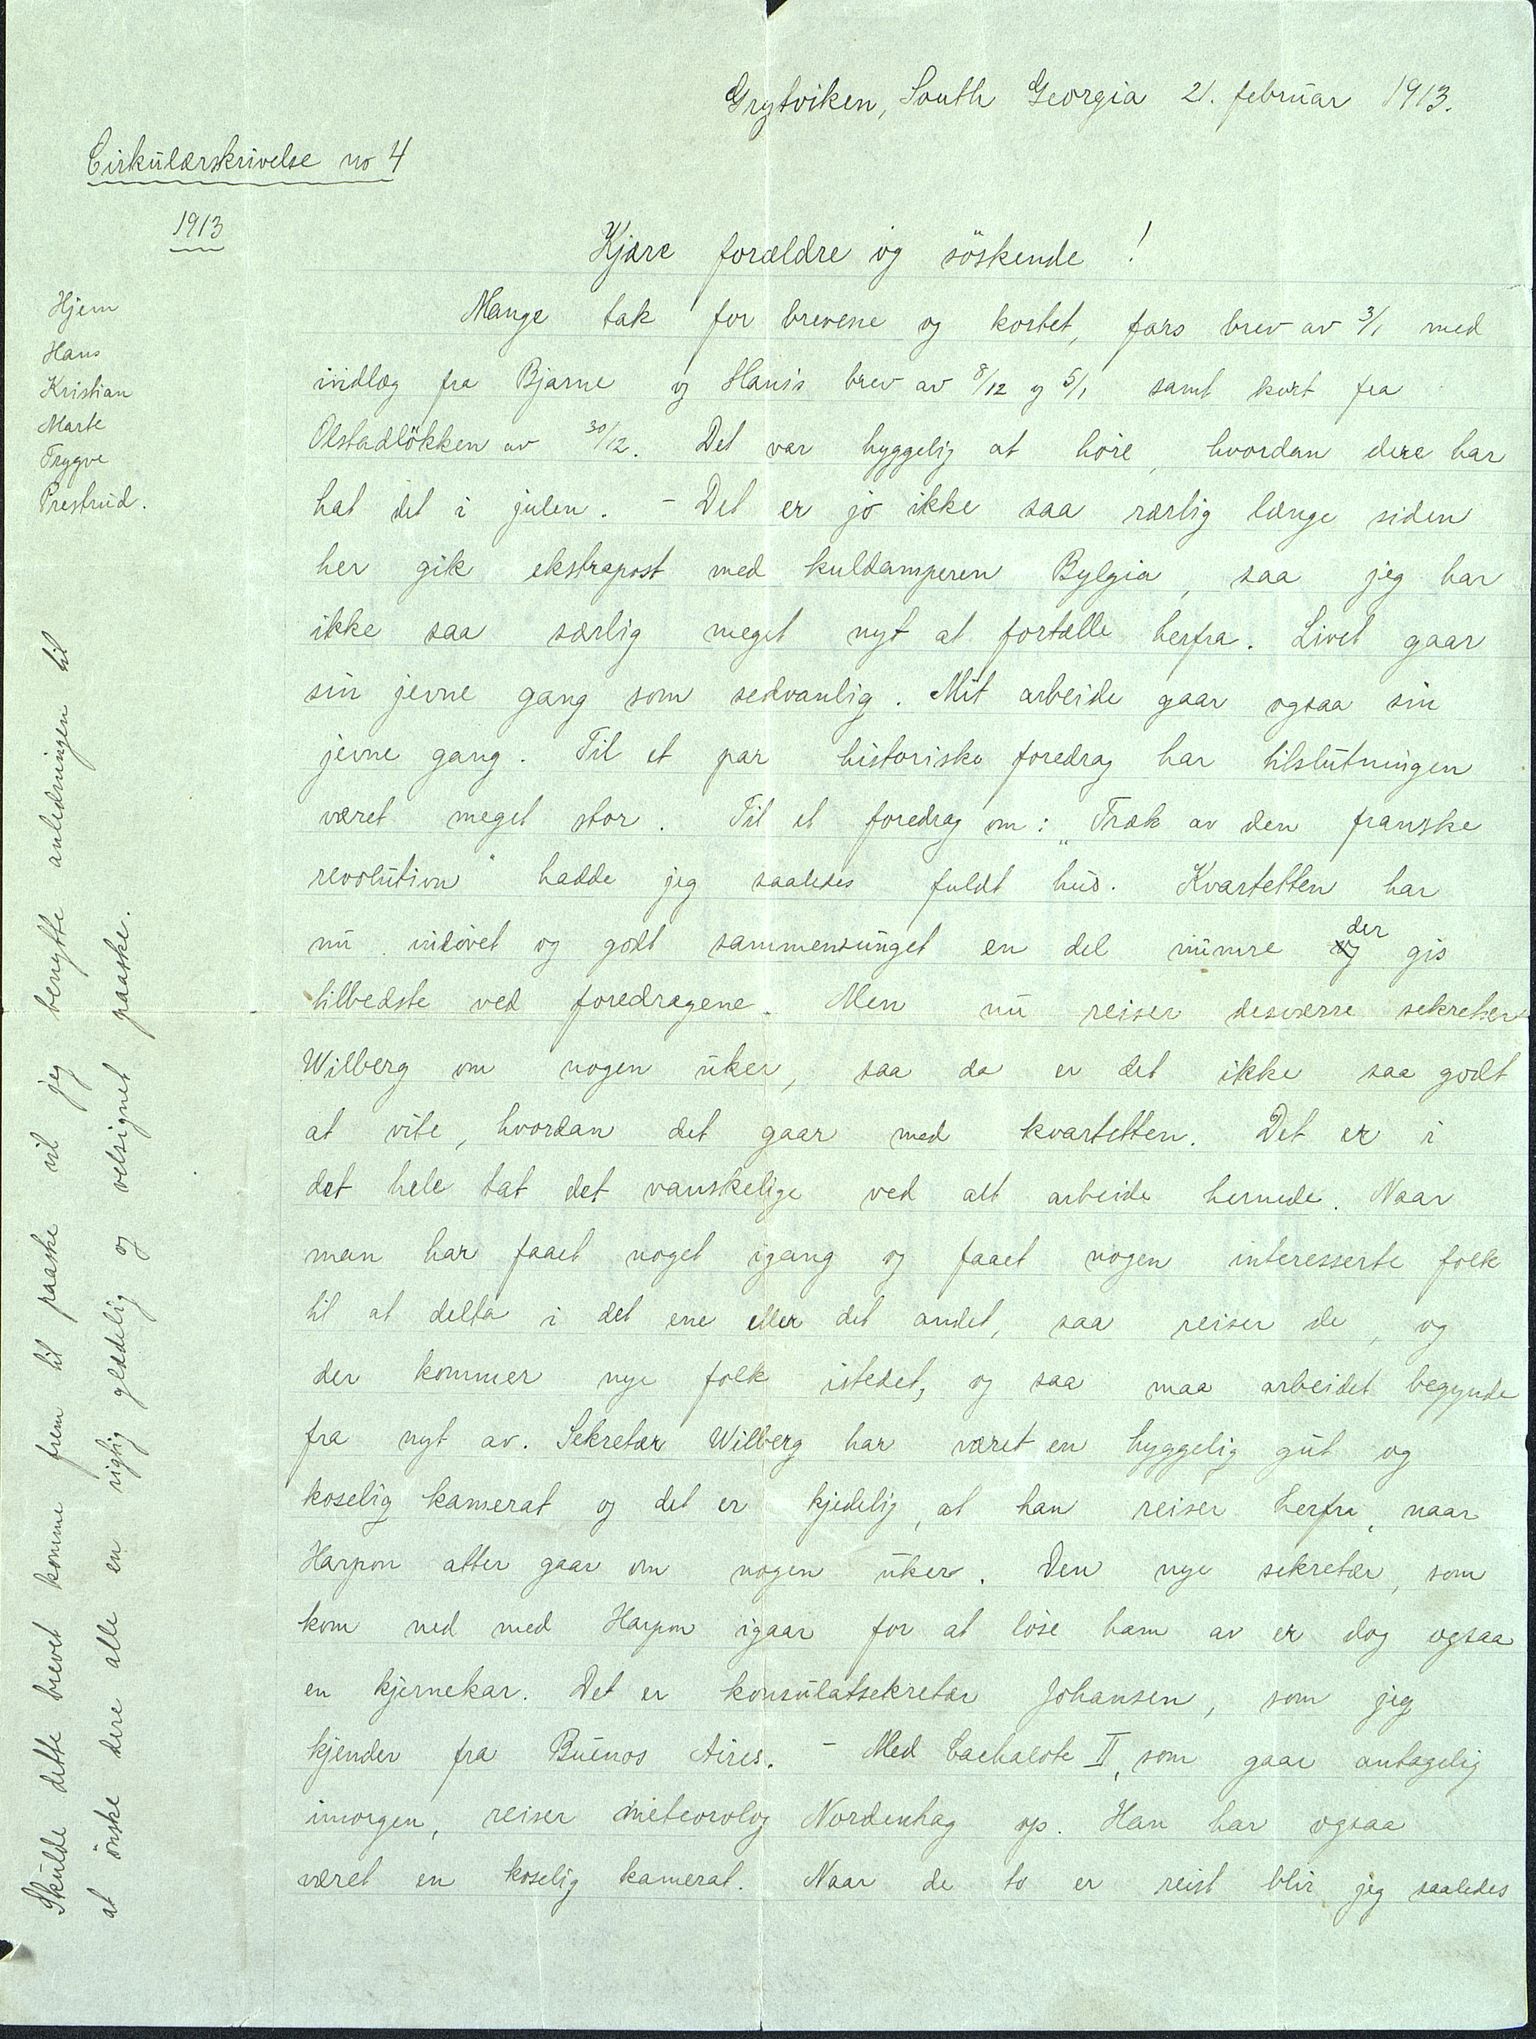 Grytviken, South Georgia 21. februar 1913.
Cirkulærskrivelse no 4
1913
Hjem
Hans
Kristian
Marte
Trygve
Prestrud.
Kjære forældre og söskende!
Mange tak for brevene og kortet, fars brev av 3/1 med
indlæg fra Bjarne og Hans's brev av 8/12 og 5/1 samt kort fra
Olstadlökken av 30/12. Det var hyggelig at höre, hvordan dere har
hat det i julen. – Det er jo ikke saa særlig længe siden
her gik ekstrapost med kuldamperen Bylgia, saa jeg har
ikke saa særlig meget nyt at fortælle herfra. Livet gaar
sin jevne gang som sedvanlig. Mit arbeide gaar ogsaa sin
jevne gang. Til et par historiske foredrag har tilslutningen
været meget stor. Til et foredrag om: „Træk av den franske
revolution" hadde jeg saaledes fuldt hus. Kvartetten har
nu indövet og godt sammensunget en del numre der gis
tilbedste ved foredragene. Men nu reiser desværre sekretær
Wilberg om nogen uker, saa da er det ikke saa godt
at vite, hvordan det gaar med kvartetten. Det er i
det hele tat det vanskelige ved alt arbeide hernede. Naar
man har faaet noget igang og faaet nogen interesserte folk
til at delta i det ene eller det andet, saa reiser de, og
der kommer nye folk istedet, og saa maa arbeidet begynde
fra nyt av. Sekretær Wilberg har været en hyggelig gut og
koselig kamerat og det er kjedelig, at han reiser herfra, naar
Harpon atter gaar om nogen uker. Den nye sekretær, som
kom ned med Harpon igaar for at löse ham av er dog ogsaa
en kjernekar. Det er konsulatsekretær Johansen, som jeg
kjender fra Buenos Aires. – Med Cachalote II, som gaar antagelig
imorgen, reiser meteorolog Nordenhag op. Han har ogsaa
været en koselig kamerat. Naar de to er reist blir jeg saaledes
Skulde dette brevet komme frem til paaske vil jeg benytte anledningen til
at önske dere alle en rigtig glædelig og velsignet paaske.